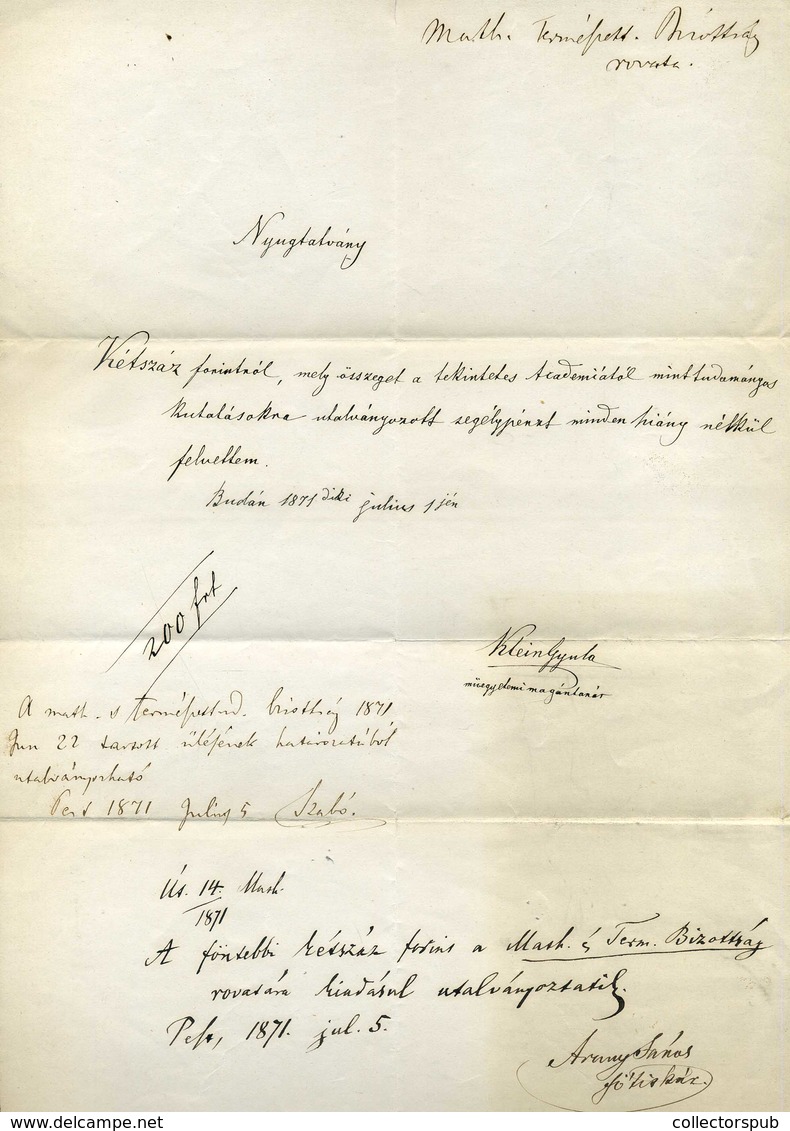 Math. Természett. Bizottság
rovata.
Nyugtatvány
Kétszáz forintról, mely összeget a tekintetes Academiától mint tudományos
kutatásokra utalványozott segélypénzt minden hiány nélkül
felvettem.
Budán 1871 diki julius 1 jén
200 frt
Klein Gyula
műegyetemi magántanár
A math. s természettud. bizottság 1871
Jun 22 tartott ülésének határozatából
utalványozható
Pest 1871 Julius 5 Szabó.
Us. 14. Math.
1871
A föntebbi kétszáz forint a Math. és Term. Bizottság
rovatára kiadásul utalványoztatik.
Pest, 1871. jul. 5.
Arany János
főtitkár.
delcampe.net
collectorspub